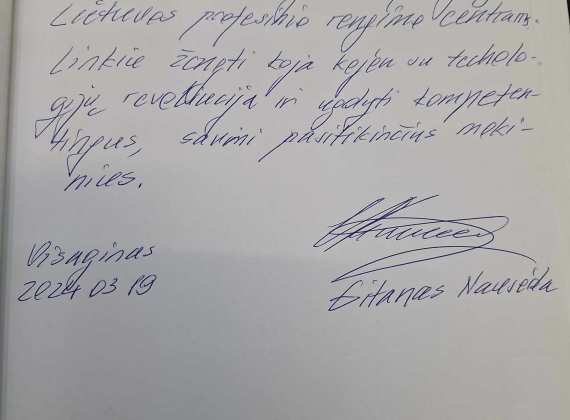 Lietuvos profesinio rengimo centram.
Linkiu žengti koja kojon su techolo-
gijų revoliucija ir ugdyti kompeten-
tingus, savimi pasitikinčius moki-
nius.
Visaginas
2024 03 19
Gitanas Nausėda